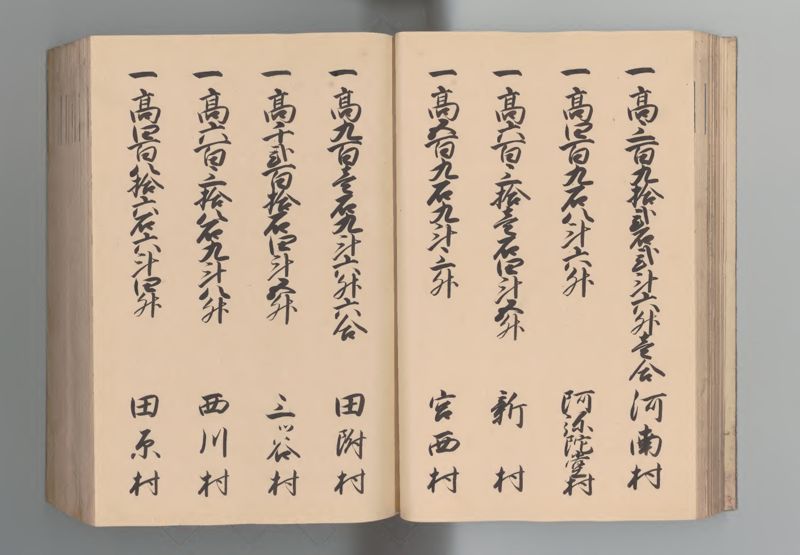 一高三百九拾弐石弐斗六升壱合 河南村
一高四百九石八斗六升 阿弥陀堂村
一高六百三拾壱石四斗五升 新村
一高五百九石九斗三升 宮西村
一高九百壱石九斗六升六合 田附村
一高千弐百拾石四斗五升 三ツ谷村
一高六百三拾八石九斗八升 西川村
一高四百八拾六石六斗四升 田原村